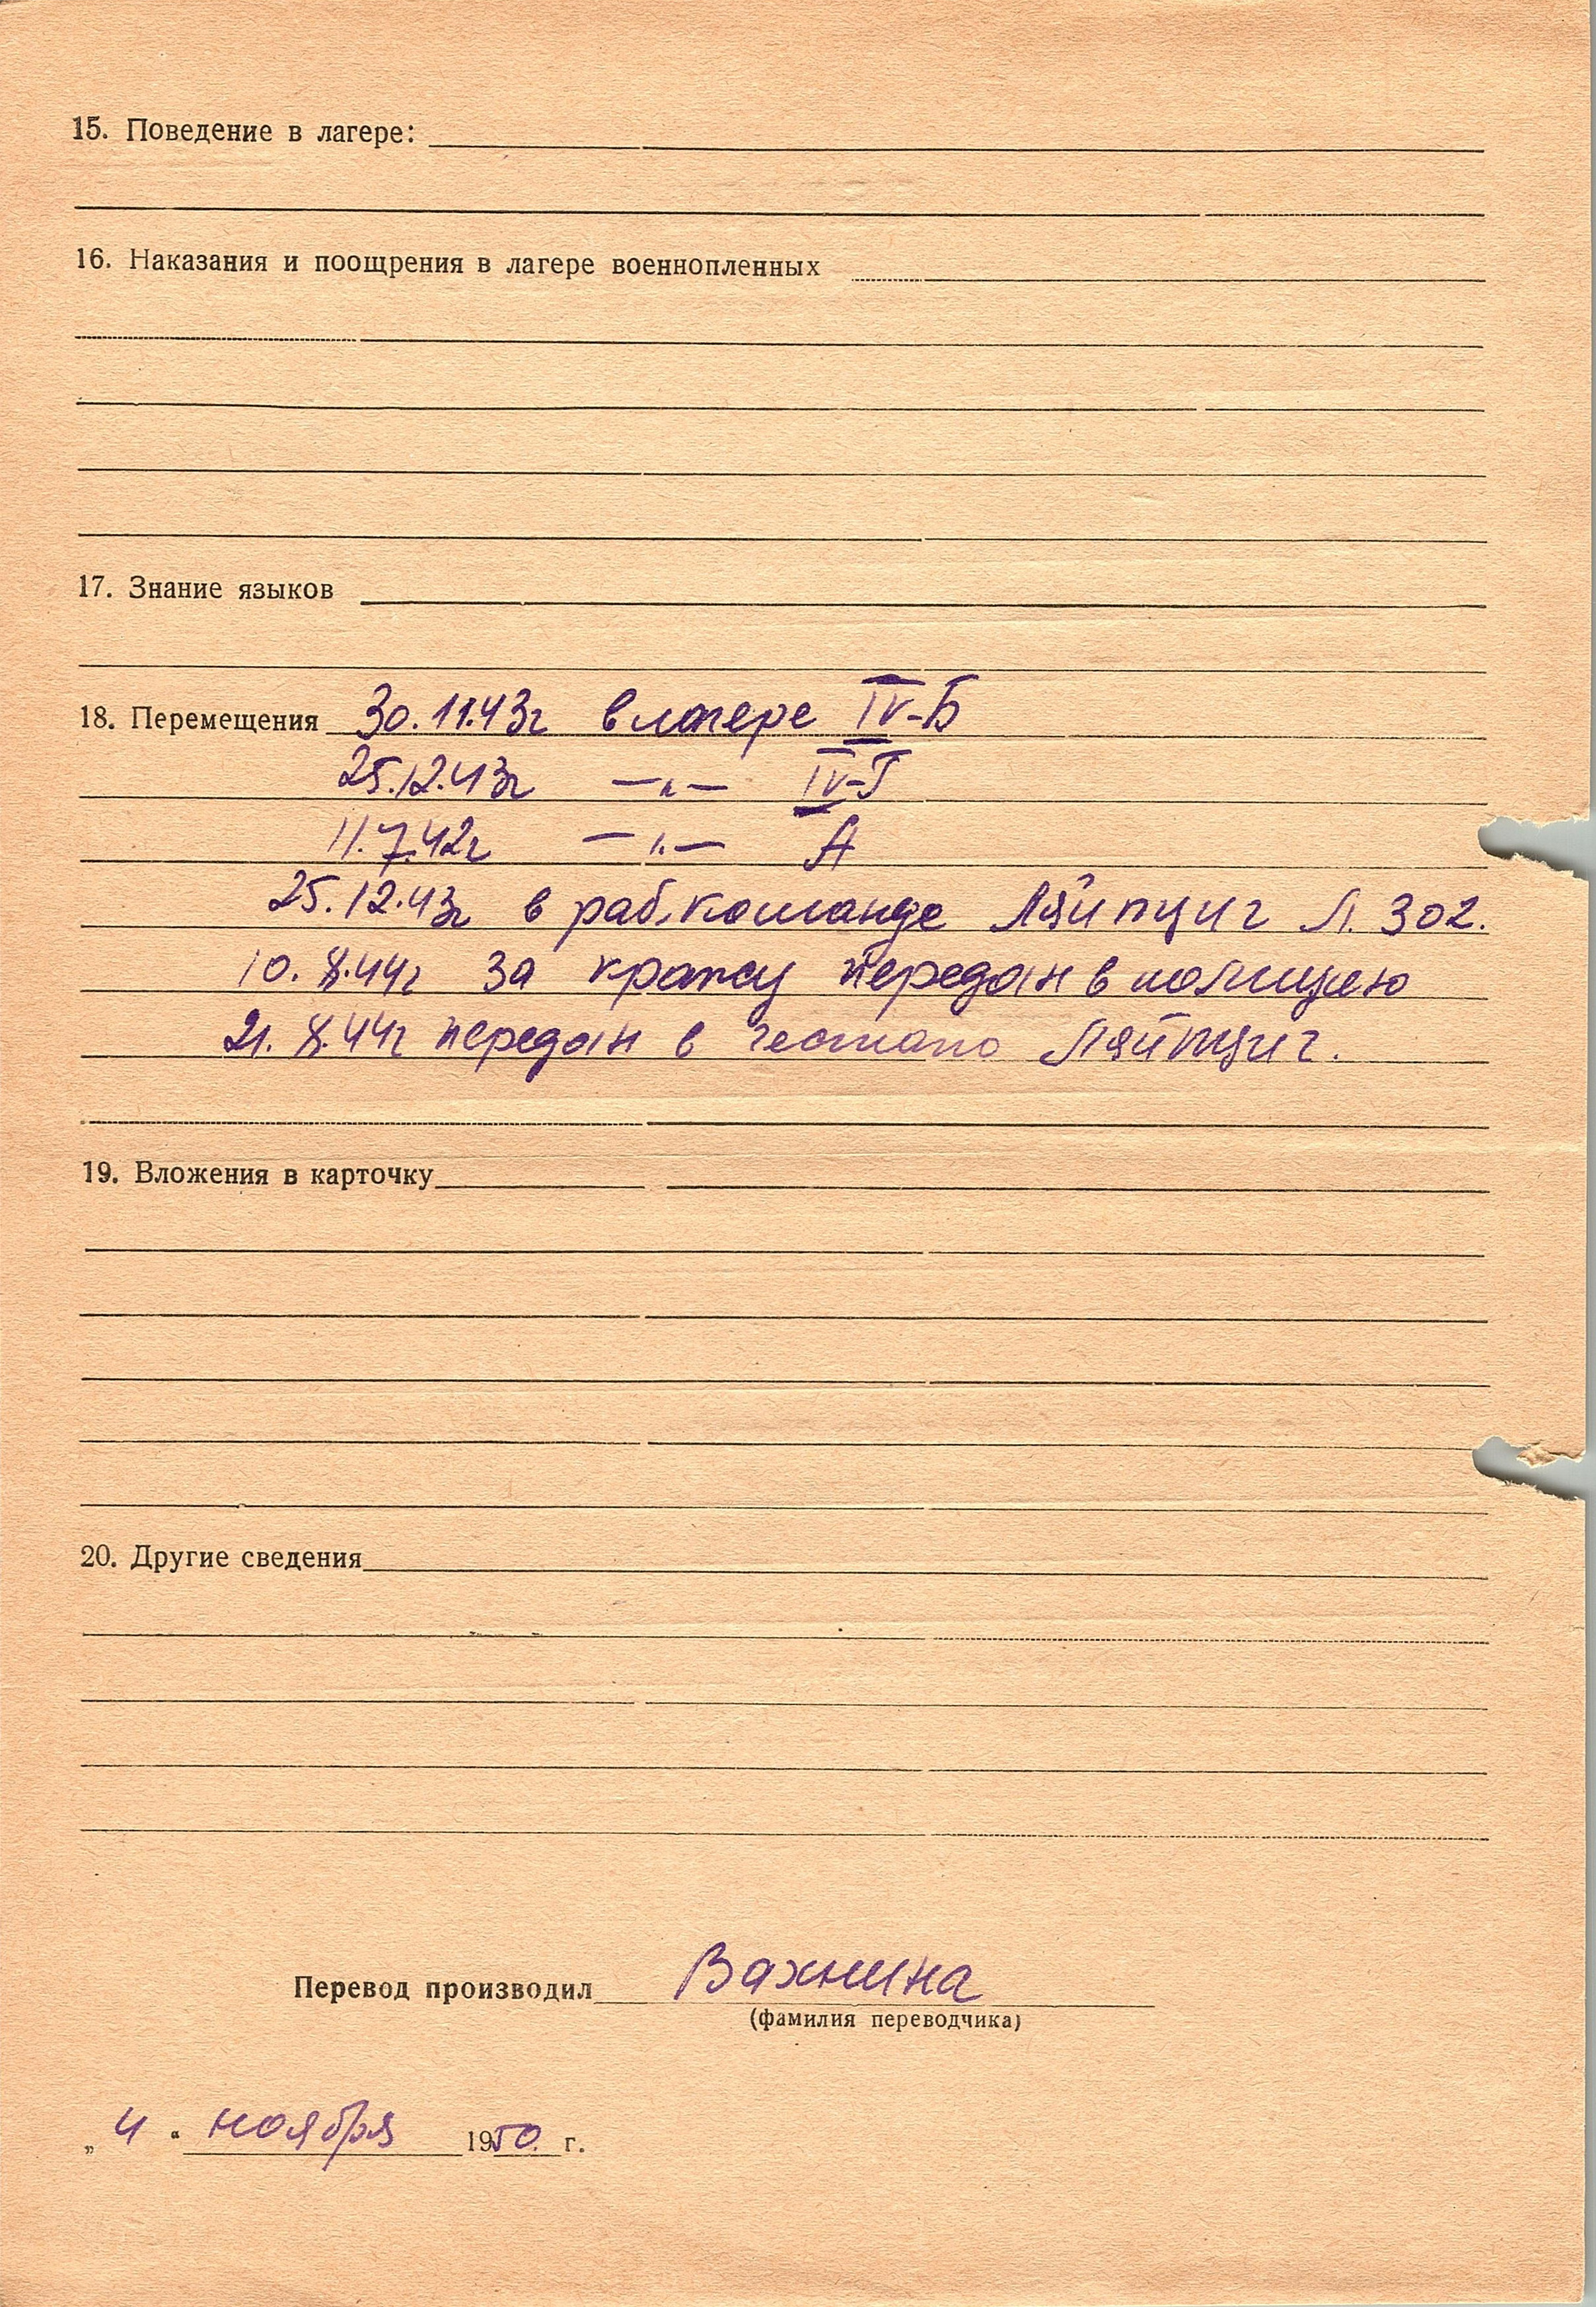 15. Поведение в лагере:
16. Наказания и поощрения в лагере военнопленных
17. Знание языков
18. Перемещения 30.11.43г в лагере IV-Б
25.12.43г —„— IV-Г
11.7.42г —„— А
25.12.43г в раб.команде Ляйпциг Л. 302.
10.8.44г за кражу передан в полицию
21.8.44г передан в гестапо Ляйпциг.
19. Вложения в карточку
20. Другие сведения
Перевод производил Вахнина
(фамилия переводчика)
„ 4 “ ноября 1950 г.